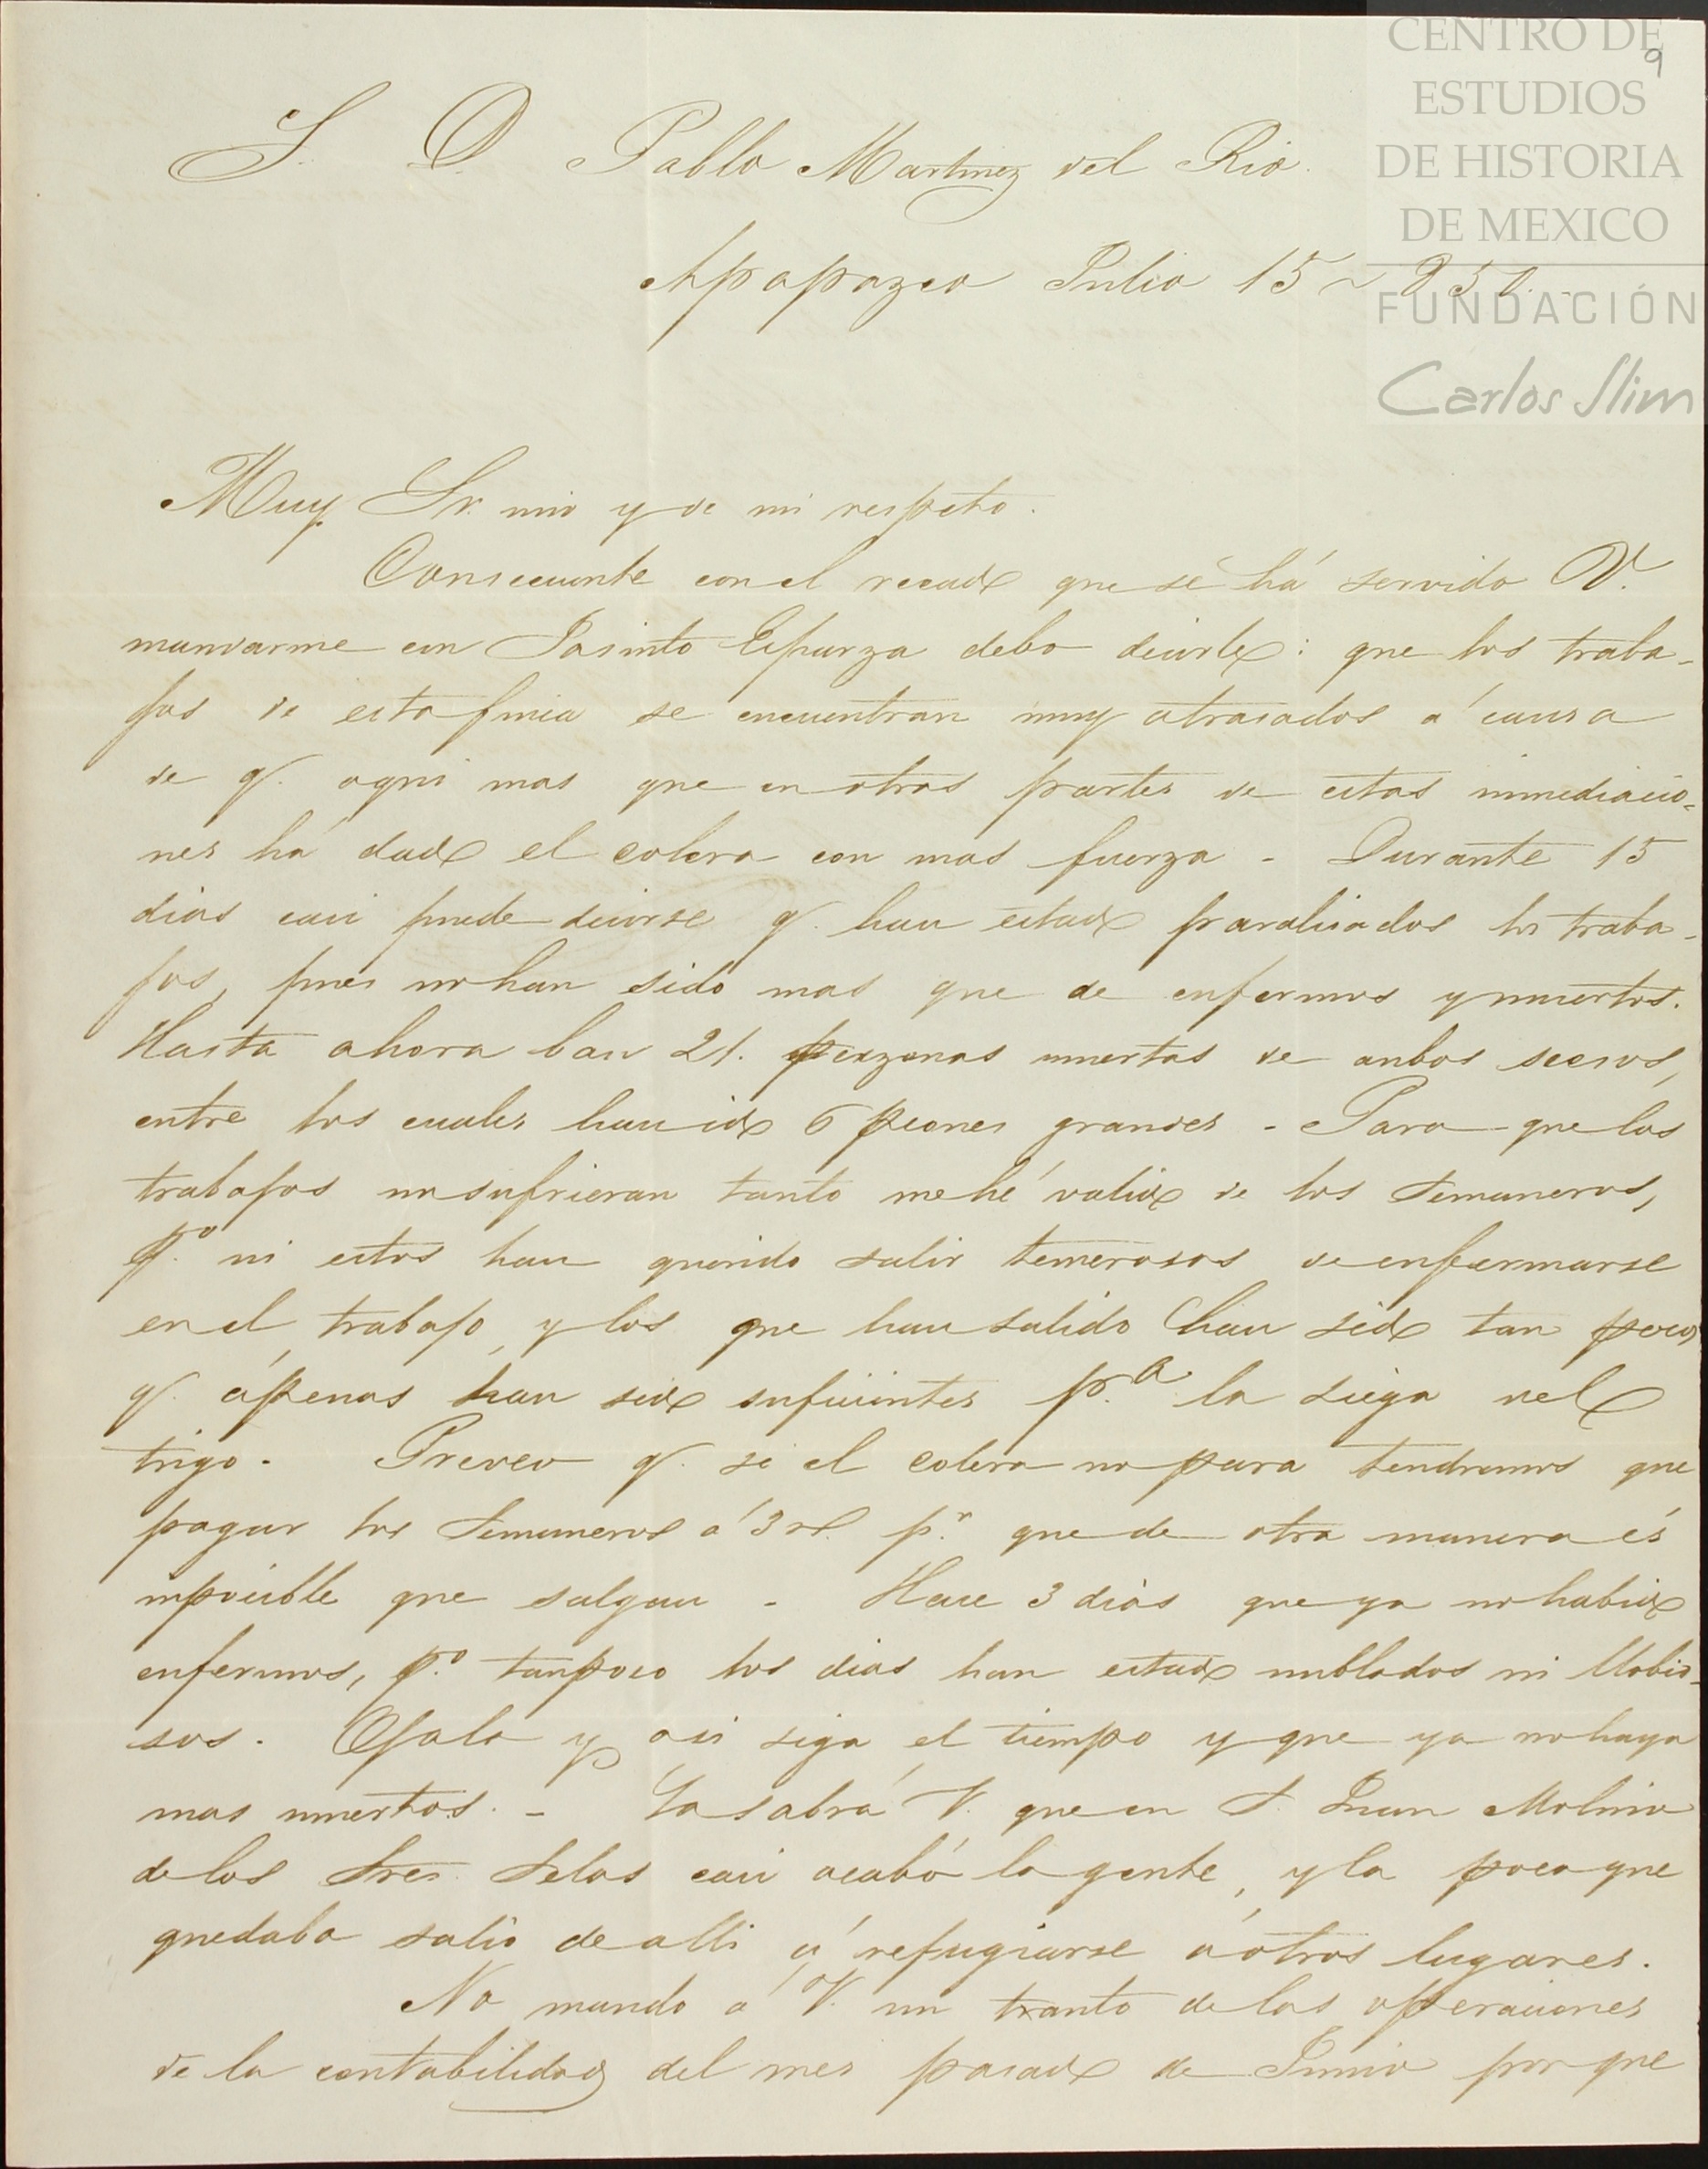 CENTRO DE
ESTUDIOS
DE HISTORIA
DE MEXICO
FUNDACIÓN
Carlos Slim
9
S. D. Pablo Martinez del Rio.
Apapazco Julio 15 ~ 850.
Muy Sr. mio y de mi respeto.
Consecuente con el recado que se há servido V.
mandarme con Jasinto Esparza debo decirle: que los traba-
jos de esta finca se encuentran muy atrasados á causa
de q. aqui mas que en otras partes de estas inmediacio-
nes há dado el colera con mas fuerza - Durante 15
dias casi puede decirse q. han estado paralisados los traba-
jos, pues no han sido mas que de enfermos y muertos.
Hasta ahora ban 21. perzonas muertas de anbos secsos,
entre los cuales han ido 6 peones grandes - Para que los
trabajos no sufrieran tanto me hé valido de los Semaneros,
p.º ni estos han querido salir temerosos de enfermarse
en el trabajo, y los que han salido han sido tan pocos
q. apenas han sido suficientes p.ª la siega del
trigo. Preveo q. si el colera no para tendremos que
pagar los Semaneros á 3 rl. p.r que de otra manera és
imposible que salgan - Hace 3 dias que ya no habido
enfermos, p.º tanpoco los dias han estado nublados ni llobio-
sos. Ojala y asi siga el tiempo y que ya no haya
mas muertos. - Ya sabrá V. que en S. Juan Molino
de los Tres Telas casi acabó la gente, y la poca que
quedaba salió de alli á refugiarse á otros lugares.
No mando á V. un tranto de las operaciones
de la contabilidad del mes pasado de Junio por que